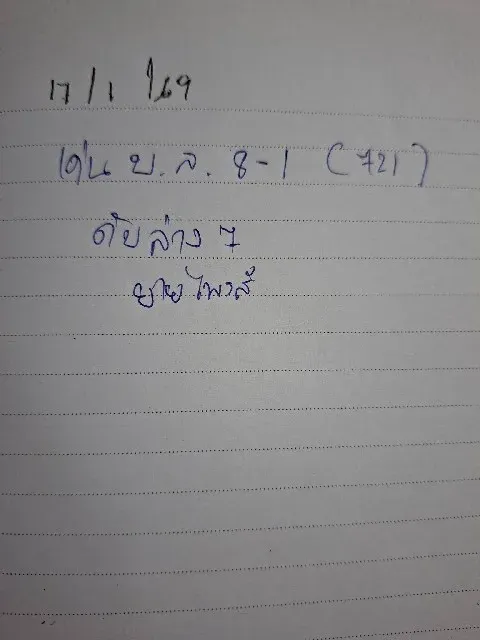 17/1/69
เด่น บ.ล. 8-1 (721)
ดับล่าง 7
ยายไพวลี